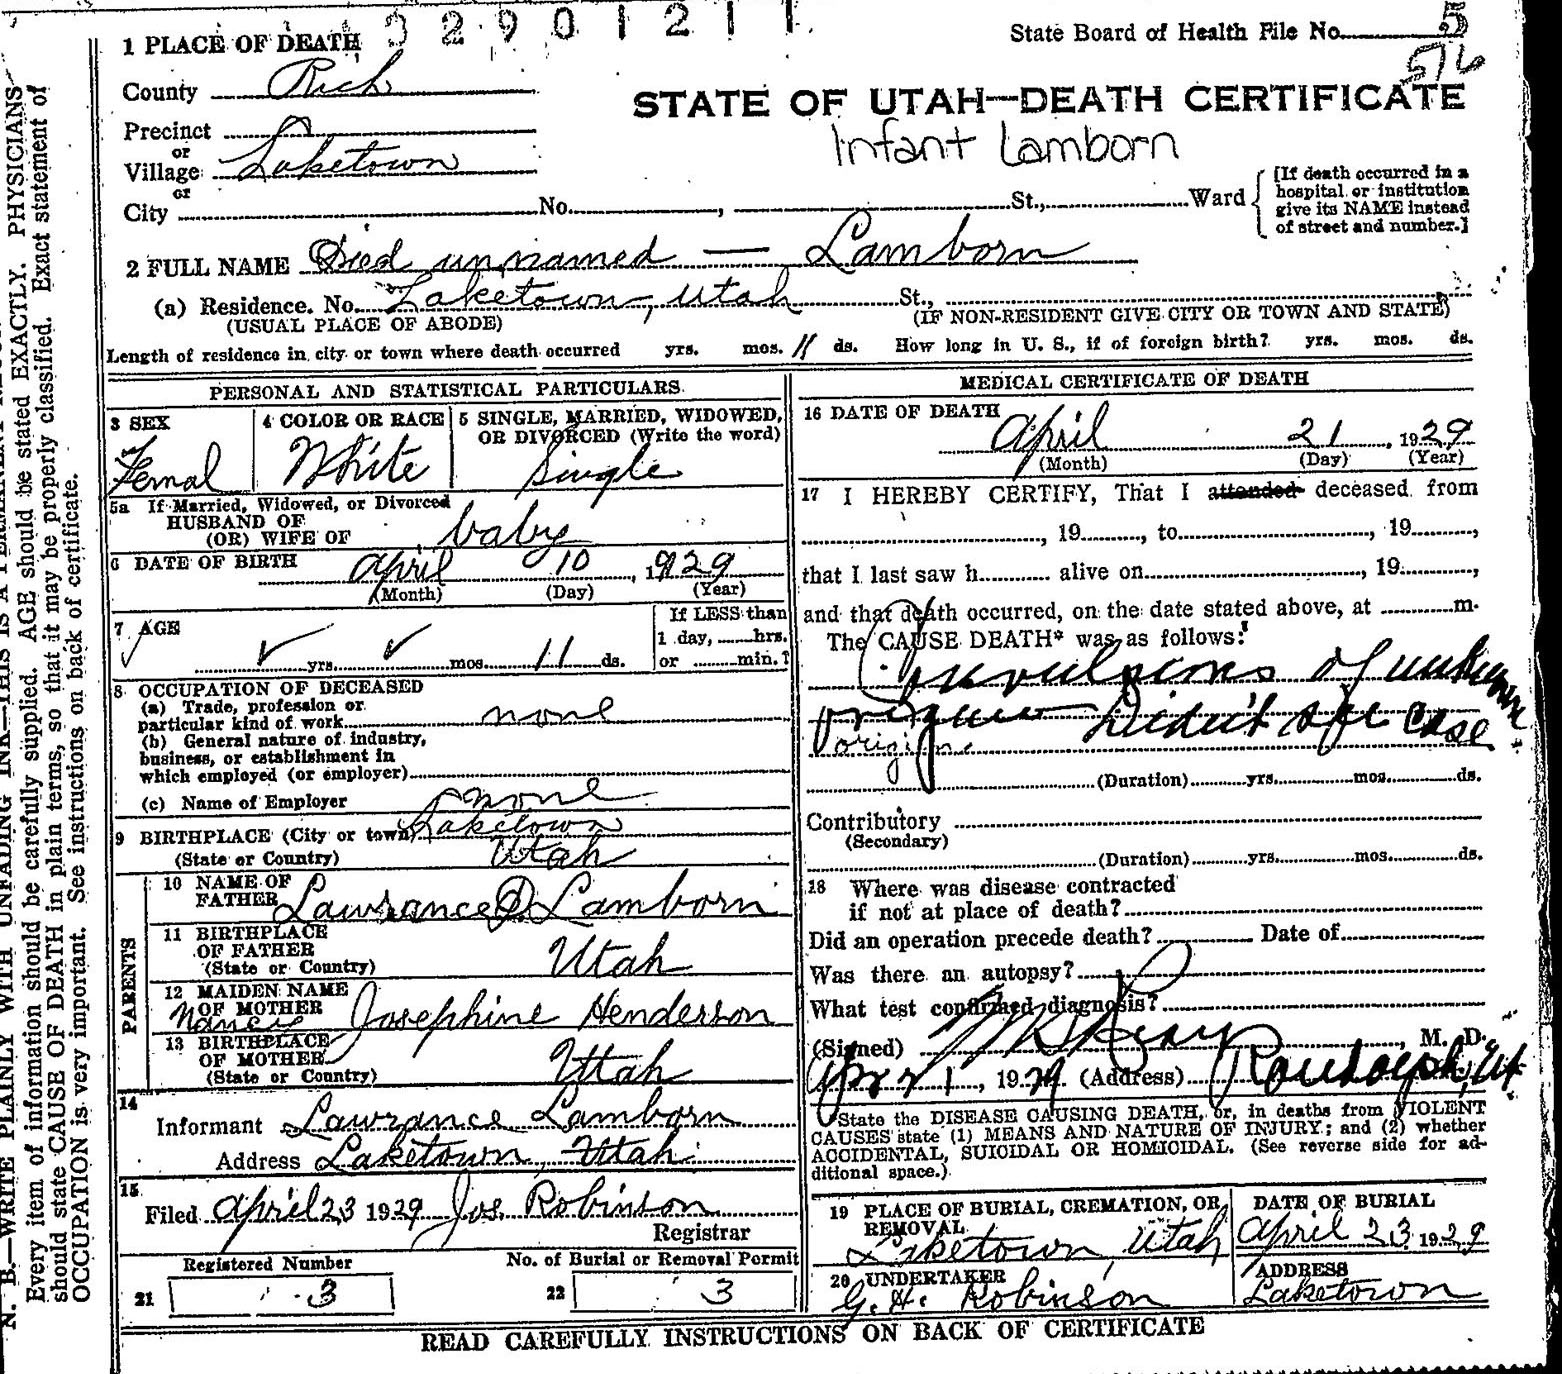 3 2 9 0 1 2 1 1
State Board of Health File No. 5
516
1 PLACE OF DEATH
County Rich
STATE OF UTAH—DEATH CERTIFICATE
Infant Lamborn
Precinct
or
Village Laketown
or
City No. , St., Ward
[If death occurred in a
hospital or institution
give its NAME instead
of street and number.]
2 FULL NAME Died unnamed — Lamborn
(a) Residence. No. Laketown, Utah St.,
(USUAL PLACE OF ABODE) (IF NON-RESIDENT GIVE CITY OR TOWN AND STATE)
Length of residence in city or town where death occurred yrs. mos. 11 ds. How long in U. S., if of foreign birth? yrs. mos. ds.
PERSONAL AND STATISTICAL PARTICULARS
3 SEX
Femal
4 COLOR OR RACE
White
5 SINGLE, MARRIED, WIDOWED,
OR DIVORCED (Write the word)
Single
5a If Married, Widowed, or Divorced
HUSBAND OF
(OR) WIFE OF baby
6 DATE OF BIRTH April 10, 1929
(Month) (Day) (Year)
7 AGE
yrs. mos. 11 ds.
If LESS than
1 day, hrs.
or min.?
8 OCCUPATION OF DECEASED
(a) Trade, profession or
particular kind of work none
(b) General nature of industry,
business, or establishment in
which employed (or employer)
(c) Name of Employer none
9 BIRTHPLACE (City or town) Laketown
(State or Country) Utah
PARENTS
10 NAME OF
FATHER Lawrance D Lamborn
11 BIRTHPLACE
OF FATHER
(State or Country) Utah
12 MAIDEN NAME
OF MOTHER
Nancie Josephine Henderson
13 BIRTHPLACE
OF MOTHER
(State or Country) Utah
14
Informant Lawrance Lamborn
Address Laketown, Utah
15
Filed April 23 1929 Jos. Robinson
Registrar
Registered Number
21 3
No. of Burial or Removal Permit
22 3
MEDICAL CERTIFICATE OF DEATH
16 DATE OF DEATH
April 21, 1929
(Month) (Day) (Year)
17 I HEREBY CERTIFY, That I attended deceased from
, 19 , to , 19 ,
that I last saw h alive on , 19 ,
and that death occurred, on the date stated above, at m.
The CAUSE DEATH* was as follows:
Convulsions of unknown
origin Didn't see case
origin
(Duration) yrs. mos. ds.
Contributory
(Secondary)
(Duration) yrs. mos. ds.
18 Where was disease contracted
if not at place of death?
Did an operation precede death? Date of
Was there an autopsy?
What test confirmed diagnosis?
(Signed) , M. D.
Apr 21, 1929 (Address) Randolph, Ut
*State the DISEASE CAUSING DEATH, or, in deaths from VIOLENT
CAUSES state (1) MEANS AND NATURE OF INJURY; and (2) whether
ACCIDENTAL, SUICIDAL OR HOMICIDAL. (See reverse side for ad-
ditional space.)
19 PLACE OF BURIAL, CREMATION, OR
REMOVAL
Laketown, Utah
DATE OF BURIAL
April 23 1929
20 UNDERTAKER
G. H. Robinson
ADDRESS
Laketown
READ CAREFULLY INSTRUCTIONS ON BACK OF CERTIFICATE
N. B.—WRITE PLAINLY WITH UNFADING INK—THIS IS A PERMANENT
Every item of information should be carefully supplied. AGE should be stated EXACTLY. PHYSICIANS
should state CAUSE OF DEATH in plain terms, so that it may be properly classified. Exact statement of
OCCUPATION is very important. See instructions on back of certificate.